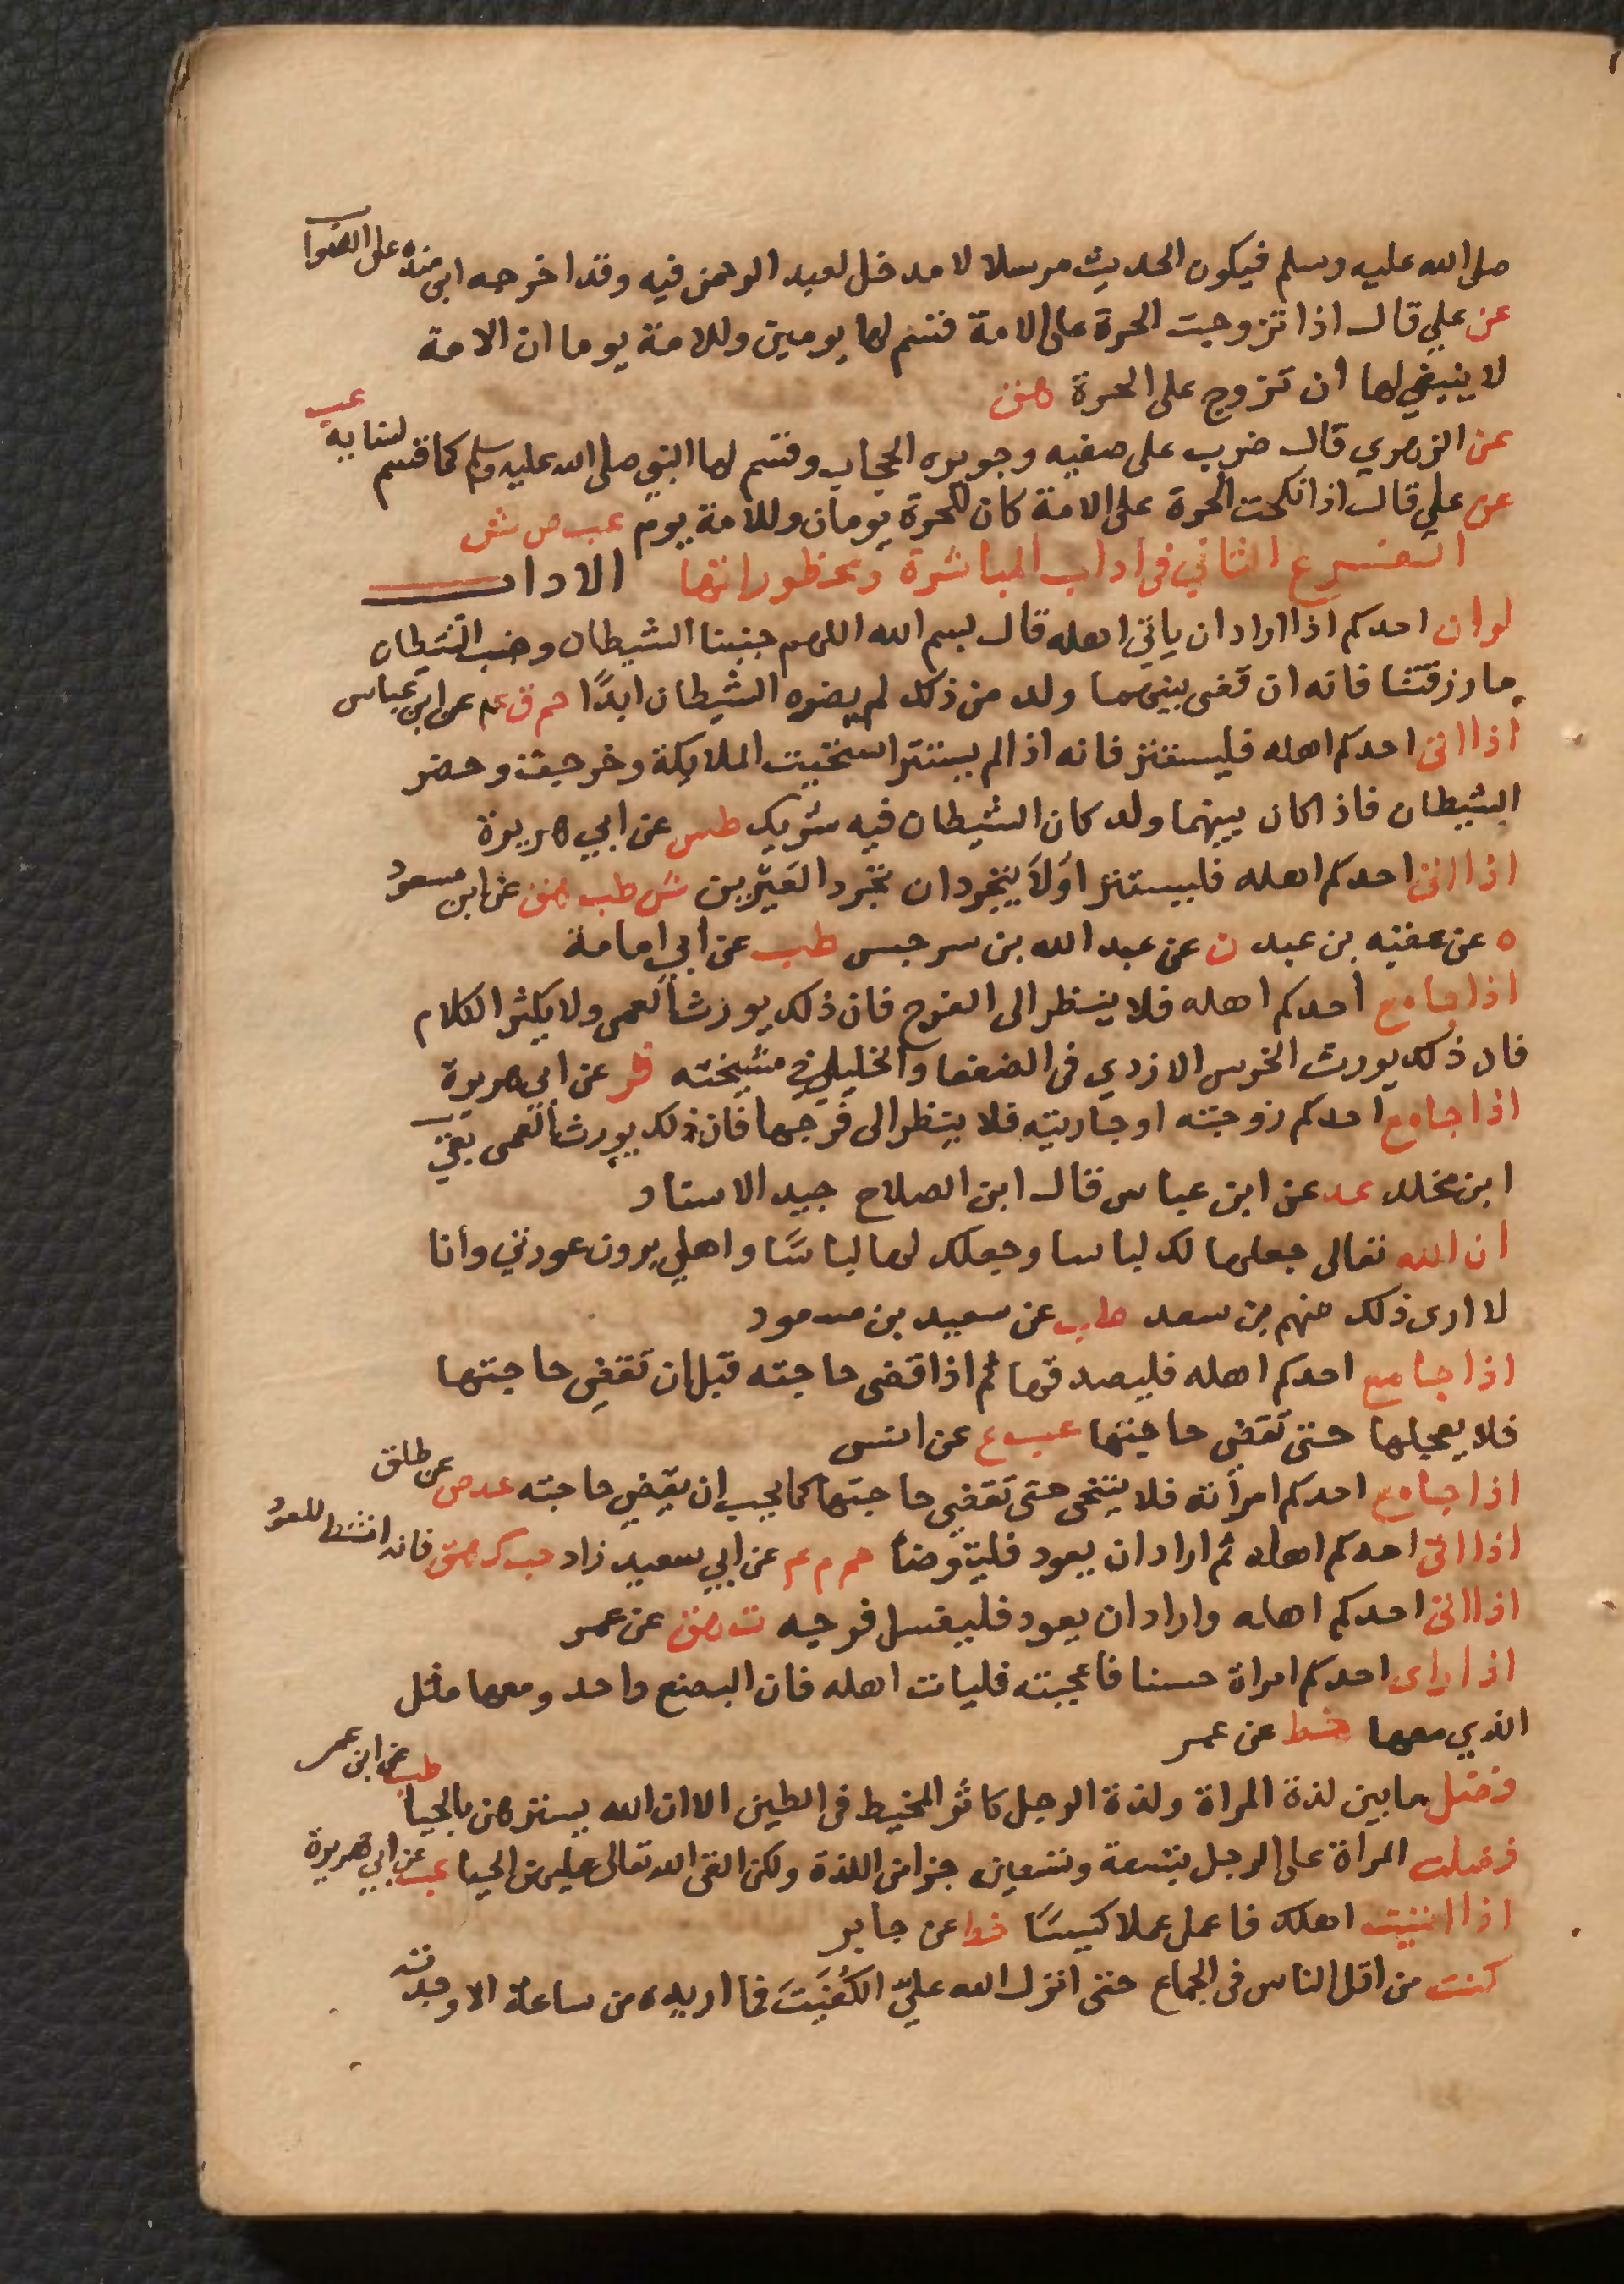 صلى الله عليه وسلم فيكون الحديث مرسلا لا مدخل لعبد الرحمن فيه وقد اخرجه ابن منده على الصواب
عن علي قال اذا تزوجت الحرة على الامة قسم لها يومين وللامة يوما ان الامة
لا ينبغي لها ان تزوج على الحرة هق
عن الزهري قال ضرب على صفيه وجويره الحجاب وقسم لها النبي صلى الله عليه وسلم كما قسم لنسايه عب
عن علي قال اذا نكحت الحرة على الامة كان للحرة يومان وللامة يوم عب ص ش
الفرع الثاني في اداب المباشرة ومحظوراتها الاداب
لوان احدكم اذا اراد ان ياتي اهله قال بسم الله اللهم جنبنا الشيطان وجنب الشيطان
ما رزقتنا فانه ان قضى بينهما ولد من ذلك لم يضره الشيطان ابدًا حم ق عم عن ابن عباس
اذا اتى احدكم اهله فليستتر فانه اذا لم يستتر استحيت الملايكة وخرجت وحضر
الشيطان فاذا كان بينهما ولد كان الشيطان فيه شريك طس عن ابي هريرة
اذا اتى احدكم اهله فليستتر اوَلاَ يتجردان تجرد العَيْرين ش طب هق عن ابن مسعود
ه عن عتبه بن عبد ن عن عبد الله بن سرجس طب عن أبي امامة
اذا جامع أحدكم اهله فلا ينظر الى الفرج فان ذلك يورث العمى ولا يكثر الكلام
فان ذلك يورث الخرس الازدي في الضعفا والخليلي في مشيخته فر عن ابي هريرة
اذا جامع احدكم زوجته او جاريته فلا ينظر الى فرجها فان ذلك يورث العمى بقي
ابن مخلد عد عن ابن عباس قال ابن الصلاح جيد الاسناد
ان الله تعالى جعلها لك لباسا وجعلك لها لباسًا واهلي يرون عورتي وأنا
لا ارى ذلك منهم بن سعد طب عن سعيد بن مسعود
اذا جامع احدكم اهله فليصدقها ثم اذا قضى حاجته قبل ان تقضي حاجتها
فلا يعجلها حتى تقضي حاجتها عب ع عن انس
اذا جامع احدكم امرأته فلا يتنحى حتى تقضي حاجتها كما يحب ان يقضي حاجته عد ص عن طلق
اذا اتى احدكم اهله ثم اراد ان يعود فليتوضأ حم م عم عن ابي سعيد زاد حب ك هق فانه انشط للعود
اذا اتى احدكم اهله واراد ان يعود فليغسل فرجه ت هق عن عمر
اذا راى احدكم امراة حسنا فاعجبته فليات اهله فان البضع واحد ومعها مثل
الذي معها خط عن عمر
فضل ما بين لذة المراة ولذة الرجل كاثر المخيط في الطين الا ان الله يسترهن بالحيا طب عن ابن عمر
فضلت المراة على الرجل بتسعة وتسعين جزا من اللذة ولكن القى الله تعالى عليهن الحيا هب عن ابي هريرة
اذا اتيت اهلك فاعمل عملا كيسًا خط عن جابر
كنت من اقل الناس في الجماع حتى انزل الله عليّ الكُفَيتَ فما اريده من ساعة الا وجدته